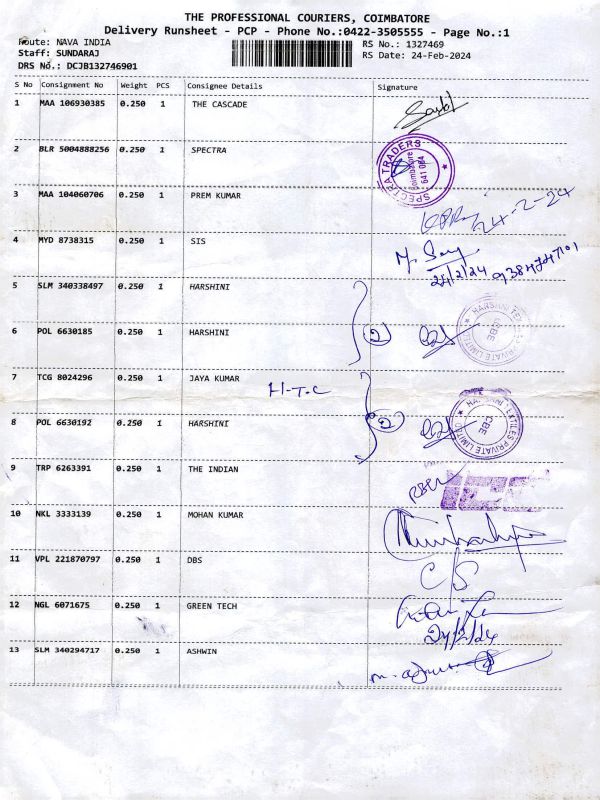 THE PROFESSIONAL COURIERS, COIMBATORE
Delivery Runsheet - PCP - Phone No.:0422-3505555 - Page No.:1
Route: NAVA INDIA
Staff: SUNDARAJ
DRS No.: DCJB132746901
RS No.: 1327469
RS Date: 24-Feb-2024
S No Consignment No Weight PCS Consignee Details Signature
1 MAA 106930385 0.250 1 THE CASCADE
2 BLR 5004888256 0.250 1 SPECTRA
SPECTRA TRADERS Coimbatore 641 004
3 MAA 104060706 0.250 1 PREM KUMAR
24-2-24
4 MYD 8738315 0.250 1 SIS
24/2/24
5 SLM 340338497 0.250 1 HARSHINI
6 POL 6630185 0.250 1 HARSHINI
2
PRIVATE LIMITED CBE
7 TCG 8024296 0.250 1 JAYA KUMAR
H-T-C
8 POL 6630192 0.250 1 HARSHINI
2
PRIVATE LIMITED CBE
9 TRP 6263391 0.250 1 THE INDIAN
10 NKL 3333139 0.250 1 MOHAN KUMAR
11 VPL 221870797 0.250 1 DBS
C/S
12 NGL 6071675 0.250 1 GREEN TECH
24/2/24
13 SLM 340294717 0.250 1 ASHWIN